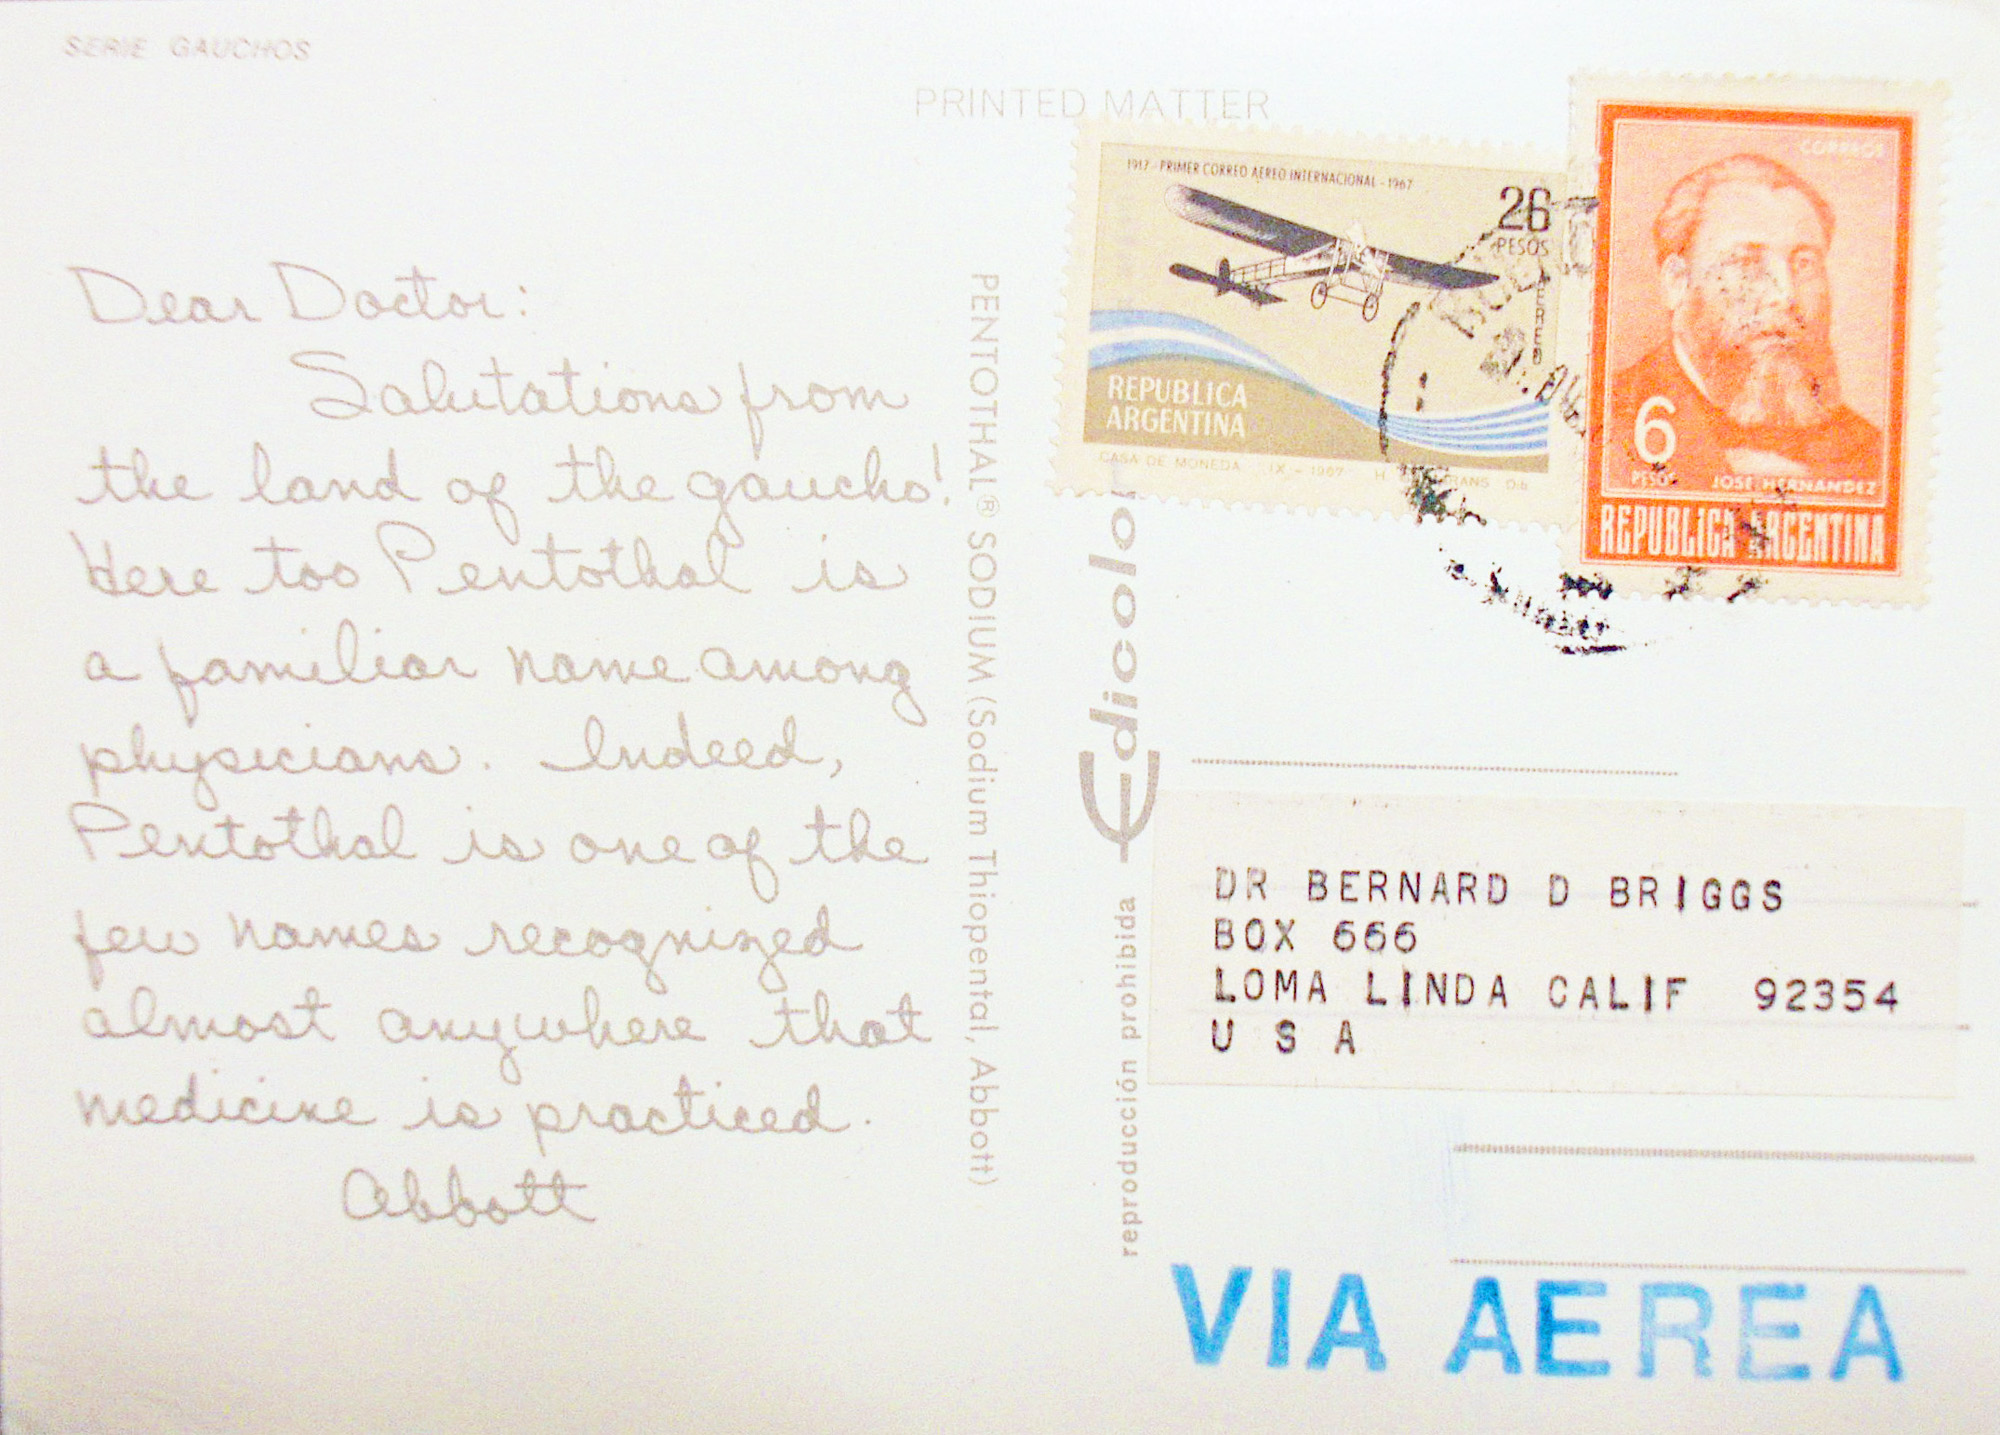 SERIE GAUCHOS
PRINTED MATTER
Dear Doctor:
Salutations from
the land of the gaucho!
Here too Pentothal is
a familiar name among
physicians. Indeed,
Pentothal is one of the
few names recognized
almost anywhere that
medicine is practiced.
Abbott
PENTOTHAL® SODIUM (Sodium Thiopental, Abbott)
Edicolor
reproducción prohibida
1917 - PRIMER CORREO AEREO INTERNACIONAL - 1967
26
PESOS
AEREO
REPUBLICA
ARGENTINA
CASA DE MONEDA IX - 1967
CORREOS
6
PESOS
JOSE HERNANDEZ
REPUBLICA ARGENTINA
DR BERNARD D BRIGGS
BOX 666
LOMA LINDA CALIF 92354
U S A
VIA AEREA